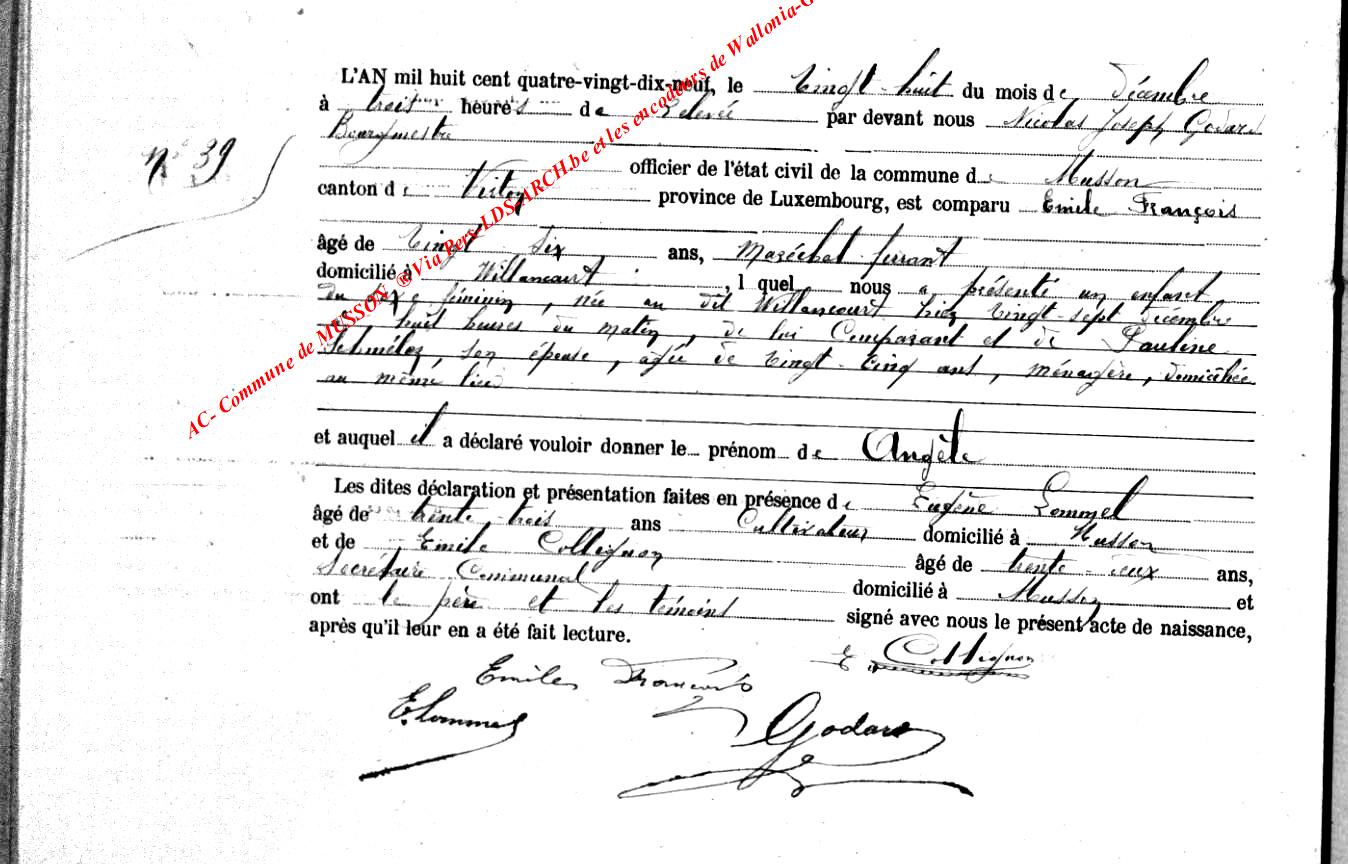 AC- Commune de MUSSON ®Via Pers-LDS-ARCH.be et les encodeurs de Wallonia-G
L'AN mil huit cent quatre-vingt-dix-neuf, le Vingt huit du mois de Décembre
à trois heures de Relevée par devant nous Nicolas Joseph Godard
Bourgmestre
n° 39
officier de l'état civil de la commune de Musson
canton de Virton province de Luxembourg, est comparu Emile François
âgé de Vingt Six ans, Maréchal ferrant
domicilié à Willancourt, l quel nous a présenté un enfant
du sexe féminin, née au dit Willancourt hier Vingt sept décembre
à huit heures du matin, de lui Comparant et de Pauline
son épouse, agée de Vingt Cinq ans, ménagère, domiciliée
au même lieu
et auquel il a déclaré vouloir donner le prénom de Angèle
Les dites déclaration et présentation faites en présence de Eugène Lommel
âgé de trente trois ans Cultivateur domicilié à Musson
et de Emile Collignon âgé de trente deux ans,
Secrétaire Communal domicilié à Musson et
ont le père et les témoins signé avec nous le présent acte de naissance,
après qu'il leur en a été fait lecture.
E Collignon
Emile François
E. Lommel
Godard